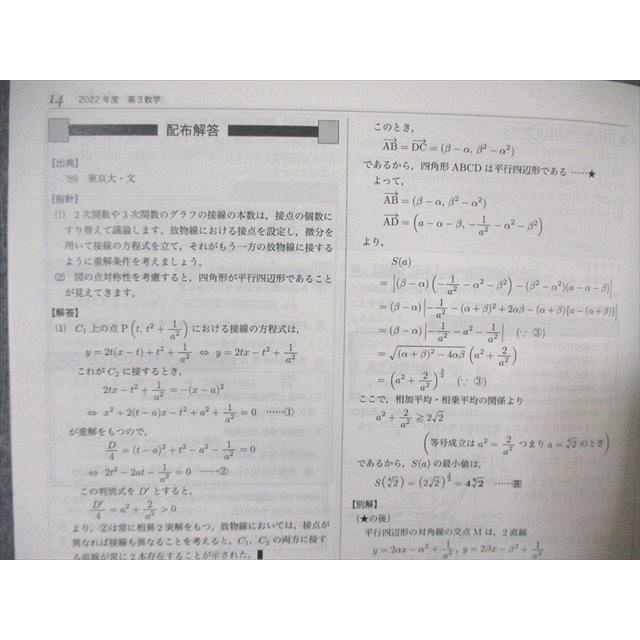 14 2022年度 高3数学
配布解答
【出典】
'89 東京大・文
【指針】
(1) 2次関数や3次関数のグラフの接線の本数は，接点の個数に
すり替えて議論します。放物線における接点を設定し，微分を
用いて接線の方程式を立て，それがもう一方の放物線に接する
ように重解条件を考えましょう。
(2) 図の点対称性を考慮すると，四角形が平行四辺形であること
が見えてきます。
【解答】
(1) C₁上の点P(t, t²+1/a²)における接線の方程式は，
y=2t(x−t)+t²+1/a² ⇔ y=2tx−t²+1/a²
これがC₂に接するとき，
2tx−t²+1/a²=−(x−a)²
⇔ x²+2(t−a)x−t²+a²+1/a²=0 ……①
が重解をもつので，
D/4=(t−a)²+t²−a²−1/a²=0
⇔ 2t²−2at−1/a²=0 ……②
この判別式をD'とすると，
D'/4=a²+2/a²>0
より，②は常に相異2実解をもつ。放物線においては，接点が
異なれば接線も異なることを考えると，C₁，C₂の両方に接す
る直線が常に2本存在することが示された。■
このとき，
AB→=DC→=(β−α, β²−α²)
であるから，四角形ABCDは平行四辺形である ……★
よって，
AB→=(β−α, β²−α²)
AD→=(a−α−β, −1/a²−α²−β²)
より，
S(a)
=|(β−α)(−1/a²−α²−β²)−(β²−α²)(a−α−β)|
=(β−α)|−1/a²−(α+β)²+2αβ−(α+β){a−(α+β)}|
=(β−α)|−1/a²−a²−1/a²| (∵ ③)
=√((α+β)²−4αβ)(a²+2/a²)
=(a²+2/a²)^(3/2) (∵ ③)
ここで，相加平均・相乗平均の関係より
a²+2/a²≧2√2
(等号成立はa²=2/a² つまりa=⁴√2のとき)
であるから，S(a)の最小値は，
S(⁴√2)=(2√2)^(3/2)=4⁴√2 ……答
【別解】
(★の後)
平行四辺形の対角線の交点Mは，2直線
y=2αx−α²+1/a², y=2βx−β²+1/a²